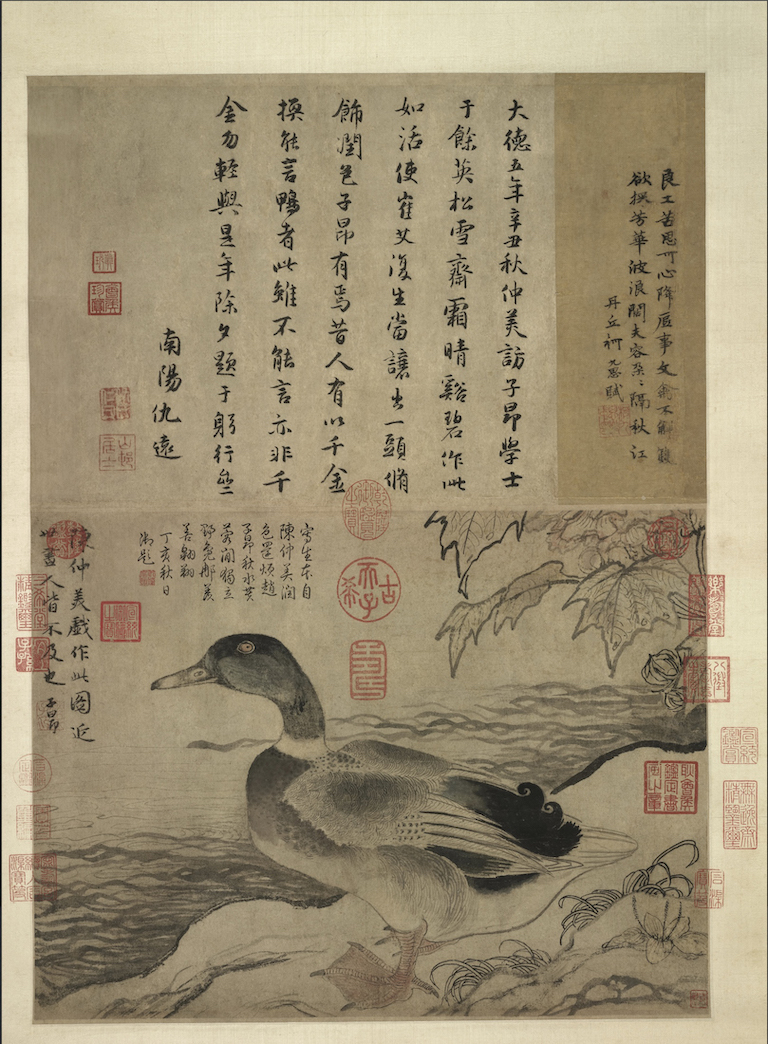 良工苦思可心降底事文禽不解雙
欲採芳華波浪闊夫容朶〻隔秋江
丹丘柯九思賦
大德五年辛丑秋仲美訪子昂學士
于餘英松雪齋霜晴谿碧作此
如活使崔艾復生當讓出一頭脩
飾潤色子昂有焉昔人有以千金
換能言鴨者此雖不能言亦非千
金勿輕與是年除夕題于躬行齋
南陽仇遠
寫生本自
陳仲美潤
色還煩趙
子昂秋水芙
蓉間獨立
野鳧那羨
善翱翔
丁亥秋日
御題
陳仲美戲作此圖近
世畫人皆不及也 子昂
古希天子